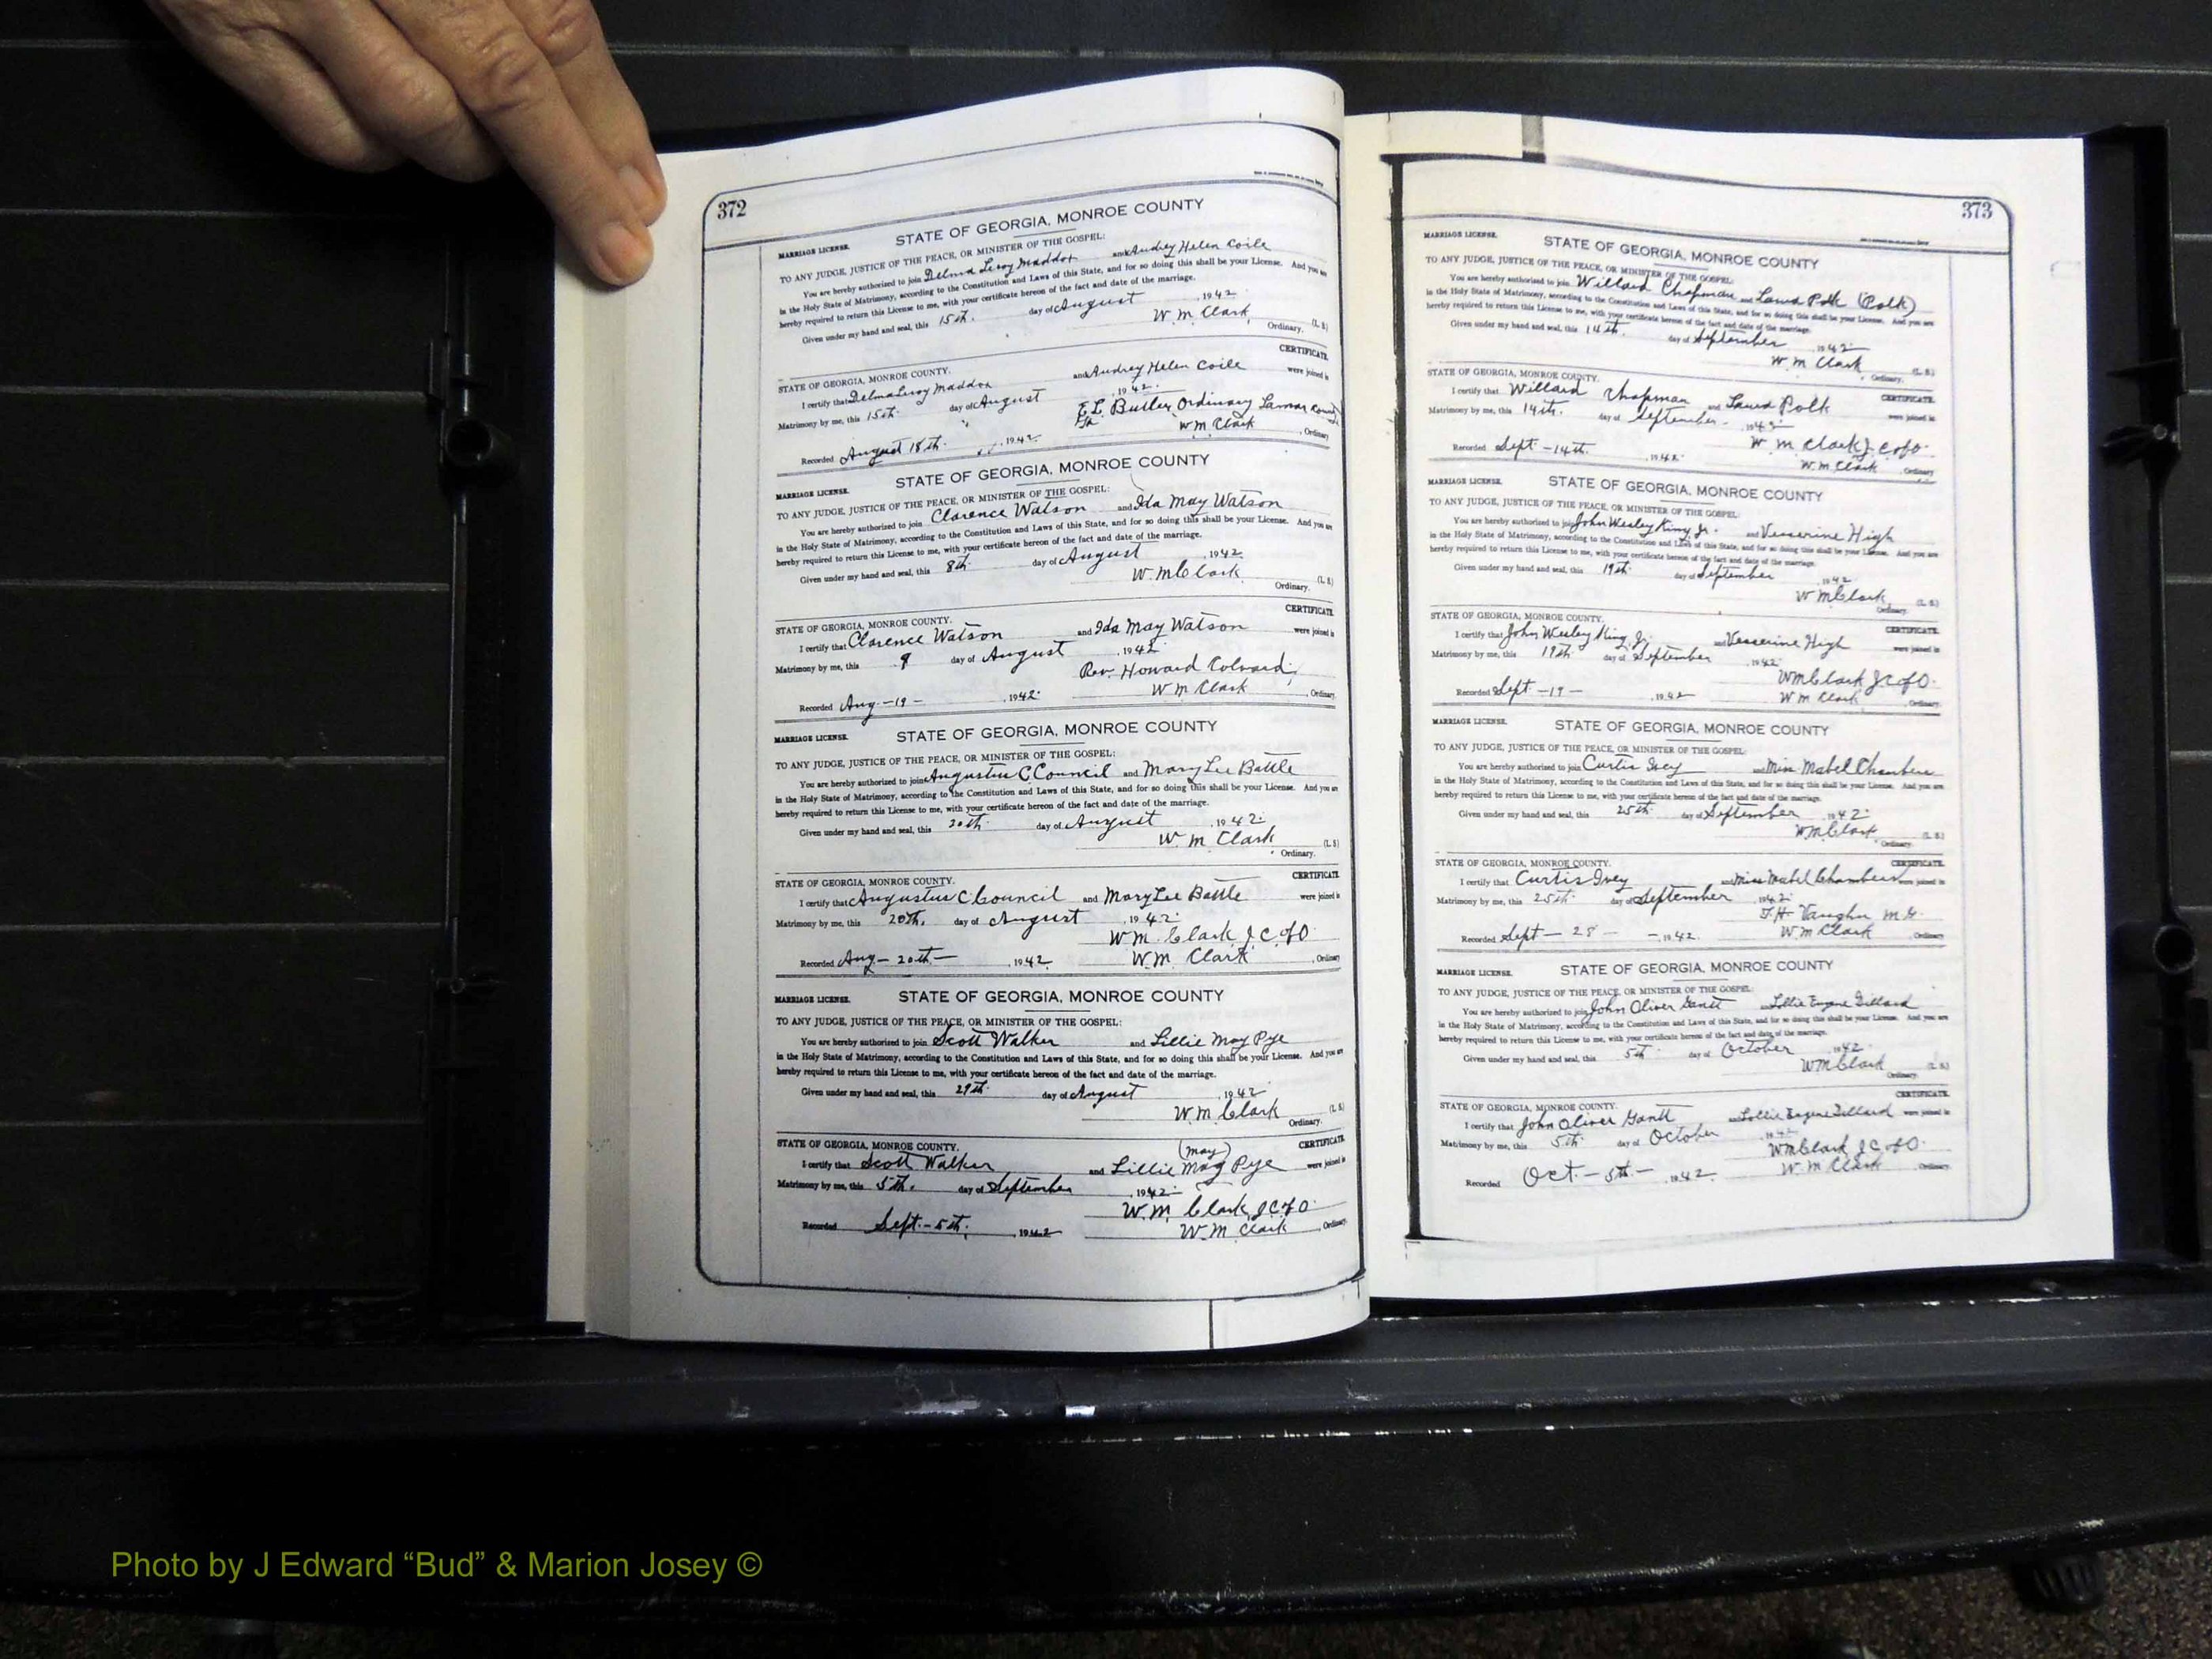 372
STATE OF GEORGIA, MONROE COUNTY
MARRIAGE LICENSE.
TO ANY JUDGE, JUSTICE OF THE PEACE, OR MINISTER OF THE GOSPEL:
You are hereby authorized to join Delma Leroy Maddox and Audrey Helen Coile
in the Holy State of Matrimony, according to the Constitution and Laws of this State, and for so doing this shall be your License. And you are
hereby required to return this License to me, with your certificate hereon of the fact and date of the marriage.
Given under my hand and seal, this 15th. day of August , 1942
W. M. Clark (L. S.)
Ordinary.
CERTIFICATE
STATE OF GEORGIA, MONROE COUNTY.
I certify that Delma Leroy Maddox and Audrey Helen Coile were joined in
Matrimony by me, this 15th. day of August , 1942.
E. L. Butler, Ordinary Lamar County
Ga.
Recorded August 18th. , 1942. W M Clark , Ordinary
STATE OF GEORGIA, MONROE COUNTY
MARRIAGE LICENSE.
TO ANY JUDGE, JUSTICE OF THE PEACE, OR MINISTER OF THE GOSPEL:
You are hereby authorized to join Clarence Watson and Ida May Watson
in the Holy State of Matrimony, according to the Constitution and Laws of this State, and for so doing this shall be your License. And you are
hereby required to return this License to me, with your certificate hereon of the fact and date of the marriage.
Given under my hand and seal, this 8th. day of August , 1942.
W. M Clark (L. S.)
Ordinary.
CERTIFICATE
STATE OF GEORGIA, MONROE COUNTY.
I certify that Clarence Watson and Ida May Watson were joined in
Matrimony by me, this 9 day of August , 1942
Rev. Howard
Recorded Aug -19- , 1942. W M Clark , Ordinary.
STATE OF GEORGIA, MONROE COUNTY
MARRIAGE LICENSE.
TO ANY JUDGE, JUSTICE OF THE PEACE, OR MINISTER OF THE GOSPEL:
You are hereby authorized to join Augustus C Council and Mary Lee Battle
in the Holy State of Matrimony, according to the Constitution and Laws of this State, and for so doing this shall be your License. And you are
hereby required to return this License to me, with your certificate hereon of the fact and date of the marriage.
Given under my hand and seal, this 20th. day of August , 1942.
W. M. Clark (L. S.)
Ordinary.
CERTIFICATE
STATE OF GEORGIA, MONROE COUNTY.
I certify that Augustus C Council and Mary Lee Battle were joined in
Matrimony by me, this 20th. day of August , 1942.
W. M. Clark J C of O.
Recorded Aug - 20th - , 1942. W. M. Clark , Ordinary
STATE OF GEORGIA, MONROE COUNTY
MARRIAGE LICENSE.
TO ANY JUDGE, JUSTICE OF THE PEACE, OR MINISTER OF THE GOSPEL:
You are hereby authorized to join Scott Walker and Lillie May Pye
in the Holy State of Matrimony, according to the Constitution and Laws of this State, and for so doing this shall be your License. And you are
hereby required to return this License to me, with your certificate hereon of the fact and date of the marriage.
Given under my hand and seal, this 29th. day of August , 1942
W. M. Clark (L. S.)
Ordinary.
STATE OF GEORGIA, MONROE COUNTY. (May) CERTIFICATE
I certify that Scott Walker and Lillie May Pye were joined in
Matrimony by me, this 5th. day of September , 1942.
W. M. Clark, J C of O
Recorded Sept. - 5th. , 1942 W. M Clark , Ordinary.
373
MARRIAGE LICENSE.
STATE OF GEORGIA, MONROE COUNTY
TO ANY JUDGE, JUSTICE OF THE PEACE, OR MINISTER OF THE GOSPEL:
You are hereby authorized to join Willard Chapman and Laura Polk (Polk)
in the Holy State of Matrimony, according to the Constitution and Laws of this State, and for so doing this shall be your License. And you are
hereby required to return this License to me, with your certificate hereon of the fact and date of the marriage.
Given under my hand and seal, this 14th. day of September , 1942
W. M Clark (L. S.)
Ordinary.
STATE OF GEORGIA, MONROE COUNTY.
CERTIFICATE
I certify that Willard Chapman and Polk were joined in
Matrimony by me, this 14th. day of September. , 1942
W. M Clark J. C of O.
Recorded Sept - 14th. , 1942. W. M Clark , Ordinary
MARRIAGE LICENSE.
STATE OF GEORGIA, MONROE COUNTY
TO ANY JUDGE, JUSTICE OF THE PEACE, OR MINISTER OF THE GOSPEL:
You are hereby authorized to join John Wesley King, Jr. and Vesserine High
in the Holy State of Matrimony, according to the Constitution and Laws of this State, and for so doing this shall be your License. And you are
hereby required to return this License to me, with your certificate hereon of the fact and date of the marriage.
Given under my hand and seal, this 19th. day of September , 1942
W M Clark (L. S.)
Ordinary.
STATE OF GEORGIA, MONROE COUNTY.
CERTIFICATE
I certify that John Wesley King, Jr. and Vesserine High were joined in
Matrimony by me, this 19th. day of September , 1942
W M Clark J C of O.
Recorded Sept - 19 - , 1942 W M Clark , Ordinary.
MARRIAGE LICENSE.
STATE OF GEORGIA, MONROE COUNTY
TO ANY JUDGE, JUSTICE OF THE PEACE, OR MINISTER OF THE GOSPEL:
You are hereby authorized to join Curtis Ivey and Miss Mabel Chambers
in the Holy State of Matrimony, according to the Constitution and Laws of this State, and for so doing this shall be your License. And you are
hereby required to return this License to me, with your certificate hereon of the fact and date of the marriage.
Given under my hand and seal, this 25th. day of September , 1942
W M Clark (L. S.)
Ordinary.
STATE OF GEORGIA, MONROE COUNTY.
CERTIFICATE
I certify that Curtis Ivey and Miss Mabel Chambers were joined in
Matrimony by me, this 25th. day of September , 1942.
J. H. Vaughn M. G.
Recorded Sept - 28 - , 1942. W M Clark , Ordinary
MARRIAGE LICENSE.
STATE OF GEORGIA, MONROE COUNTY
TO ANY JUDGE, JUSTICE OF THE PEACE, OR MINISTER OF THE GOSPEL:
You are hereby authorized to join John Oliver Gantt Lollie Eugene Dillard
in the Holy State of Matrimony, according to the Constitution and Laws of this State, and for so doing this shall be your License. And you are
hereby required to return this License to me, with your certificate hereon of the fact and date of the marriage.
Given under my hand and seal, this 5th. day of October , 1942.
W M Clark (L. S.)
Ordinary.
CERTIFICATE.
STATE OF GEORGIA, MONROE COUNTY.
I certify that John Oliver Gantt and Lollie Eugene Dillard were joined in
Matrimony by me, this 5th. day of October , 1942
W M Clark J C of O.
Recorded Oct. - 5th - , 1942. W. M Clark , Ordinary.
Photo by J Edward “Bud” & Marion Josey ©